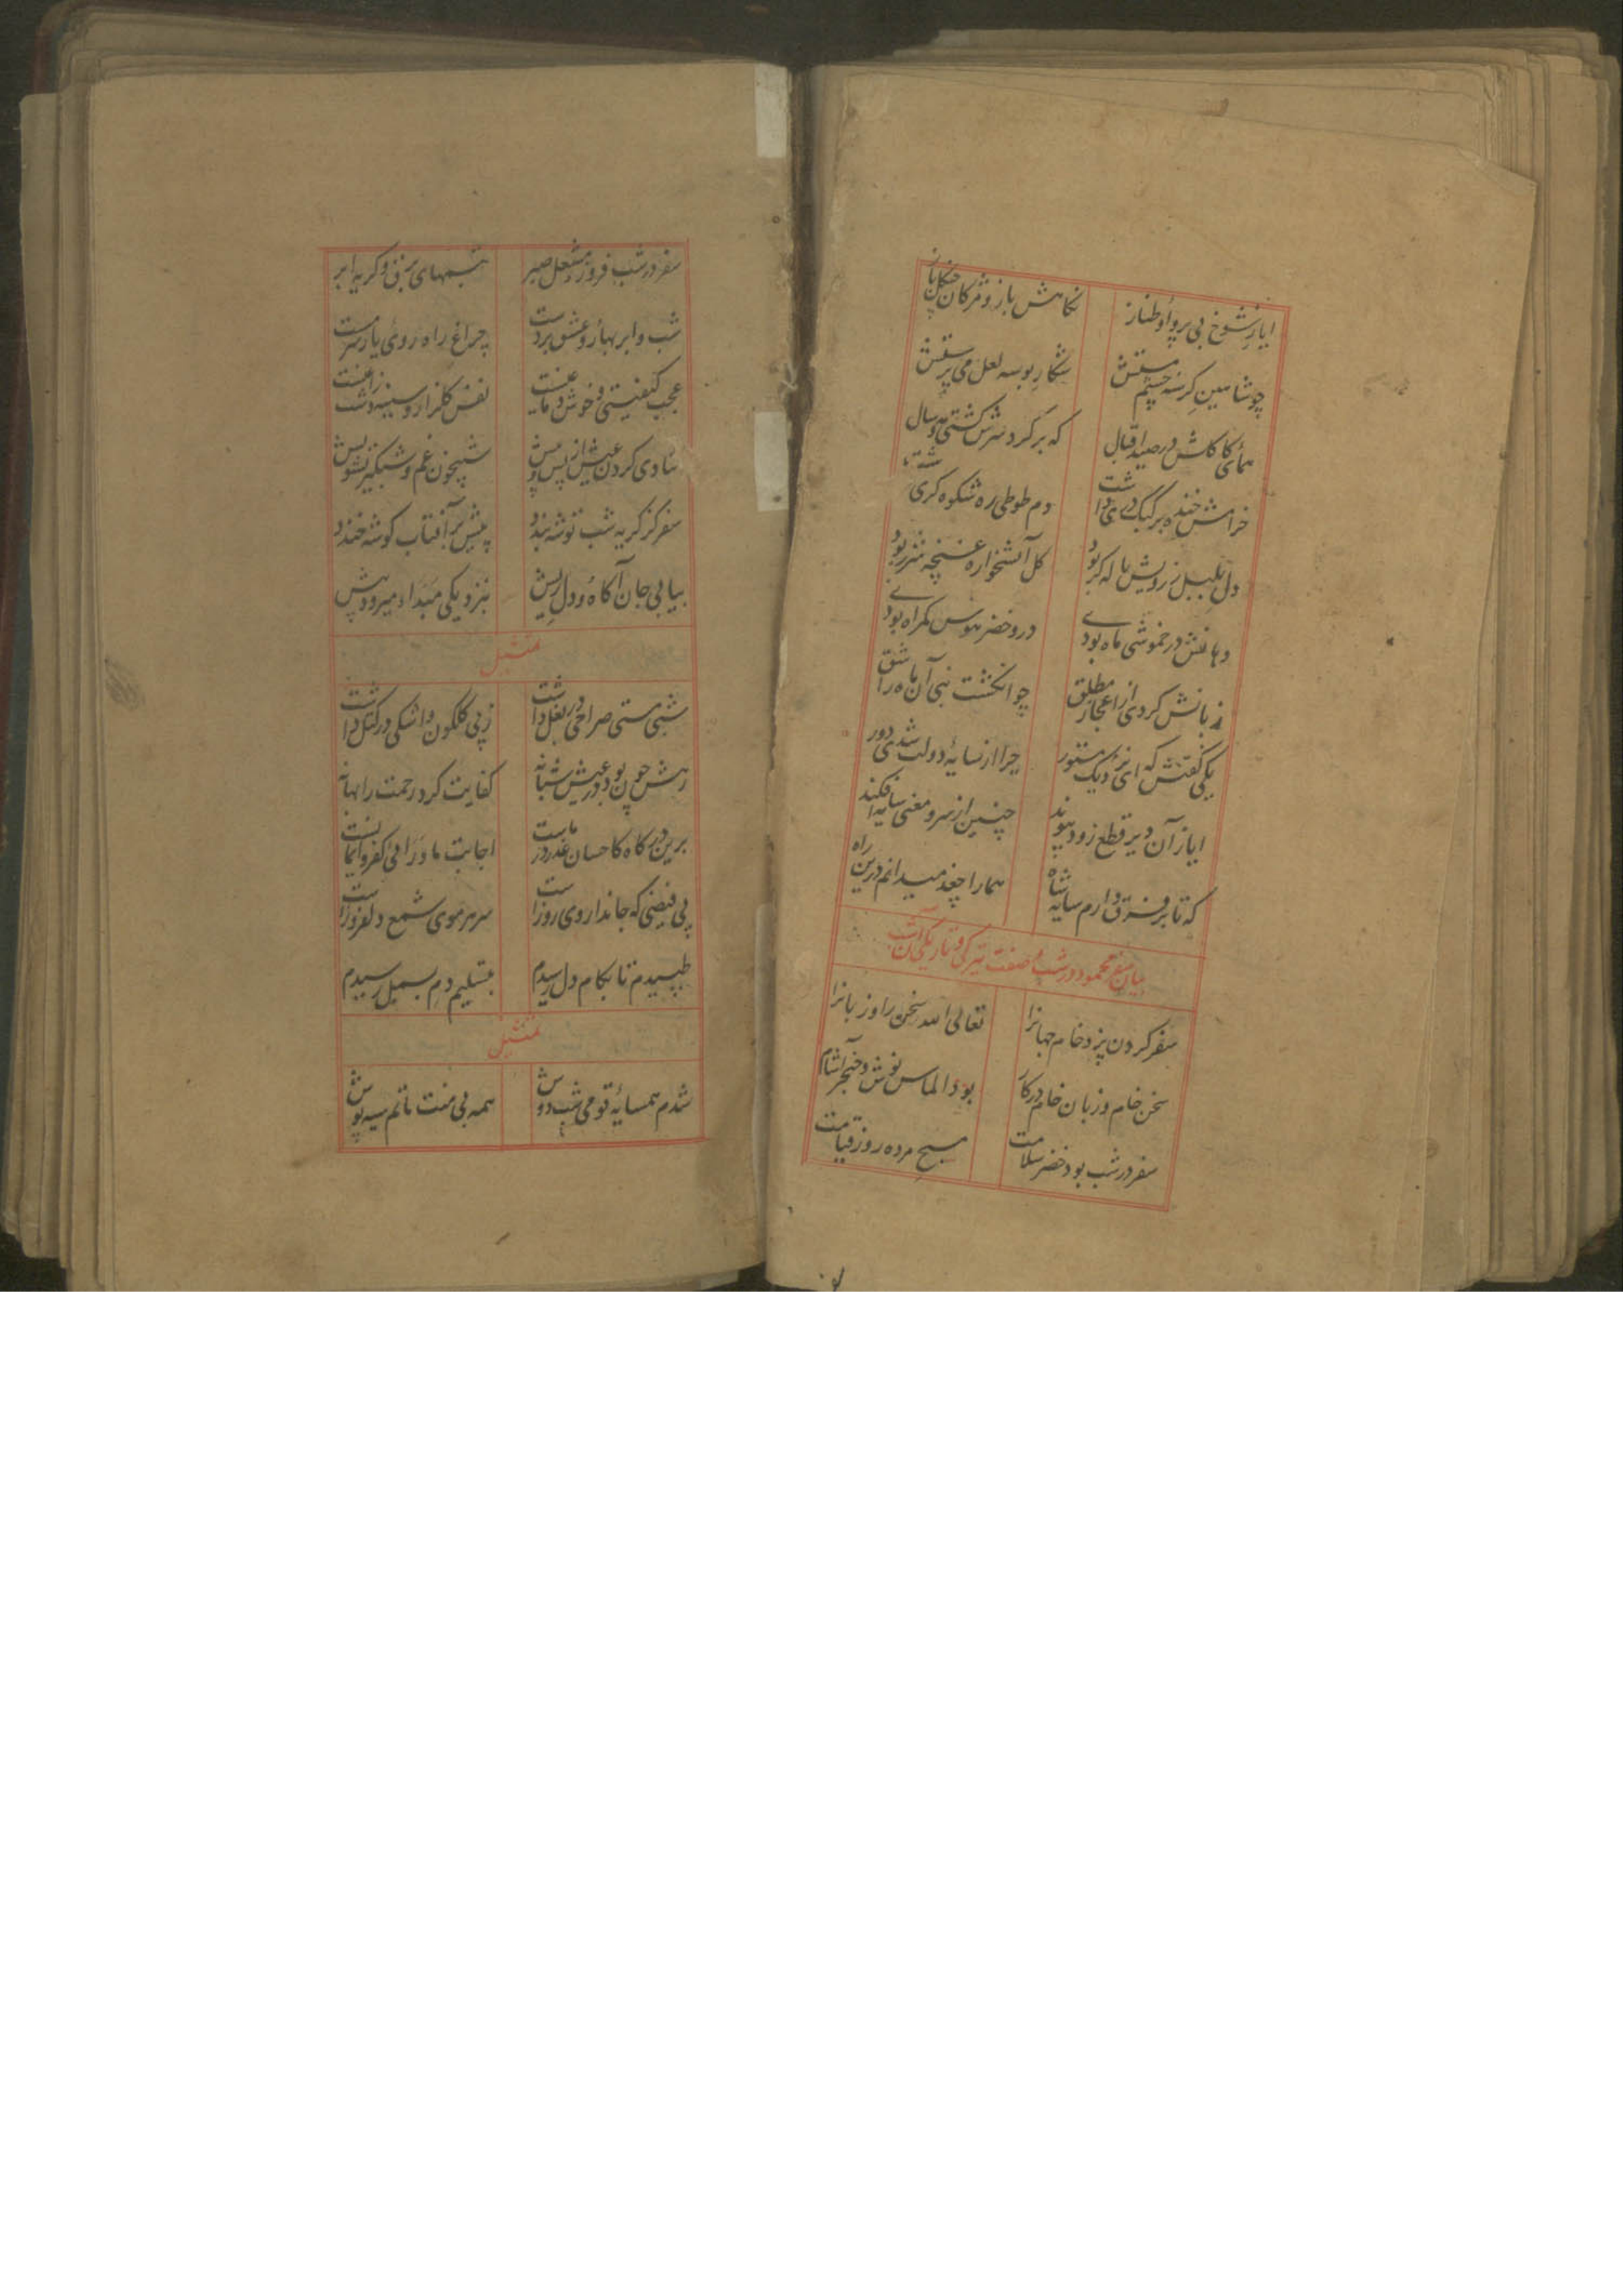 ایاز شوخ بی پروا و طناز نگاهش باز و مژکان چنکل باز
چو شاهین کرسنه چشم مستش شکار بوسه لعل می پرستش
همای کاکلش در صید اقبال که بر کرد سرش کشتی مه و سال
خرامش خنده بر کبک دری داشت دم طوطی ره شکوه کری داشت
دل بلبل ز رویش ناله کر بود کل آتشخواره غنچه شرر بود
دهانش در خموشی ماه بودی درو خضر هوس کمراه بودی
زبانش کردی از اعجاز مطلق چو انکشت نبی آن ماه را شق
یکی کفتش که ای نزدیک مستور چرا از سایهٔ دولت شدی دور
ایاز آن دیر قطع زود پیوند چنین از سرو معنی سایه افکند
که تا بر فرق دارم سایه شاه هما را چغد میدانم درین راه
بیان سفر محمود در شب و صفت تیرکی و تاریکی آن شب
سفر کردن پزد خام جهانرا تعالی الله سخن را و زبانرا
سخن خام و زبان خام در کار بود الماس نوش و خنجر آشام
سفر در شب بود خضر سلامت مسیح مرده روز قیامت
سفر در شب فروزد مشعل صبر تبسمهای برق و کریه ابر
شب و ابر بهار و عشق بر دست چراغ راه روی یار سرمست
عجب کیفیتی و خوش دماغیست نفس کلزار و سینه دشت زاغیست
شادی کردن عیش از پس و پیش شبیخون غم و شبکیر تشویش
سفر کز کریه شب توشه بندد پیش بر آفتاب کوشه خندد
بیا بی جان آکاه و دل ریش بنزدیکی مبدا میرود پیش
تمثیل
شبی مستی صراحی در بغل داشت ز پی کلکون و اشکی در کتل داشت
رهش چون بود در عیش شبانه کفایت کرد رحمت را بهانه
برین درکاه کاحسان عذر در ماست اجابت ماورای کفر و ایمانست
پی فیضی که جاندار وی روز است سر هر موی شمع دلفروز است
طپیدم تا بکام دل رسیدم بتسلیم دم بسمل رسیدم
تمثیل
شدم همسایهٔ قومی شب دوش همه بی منت ماتم سیه پوش